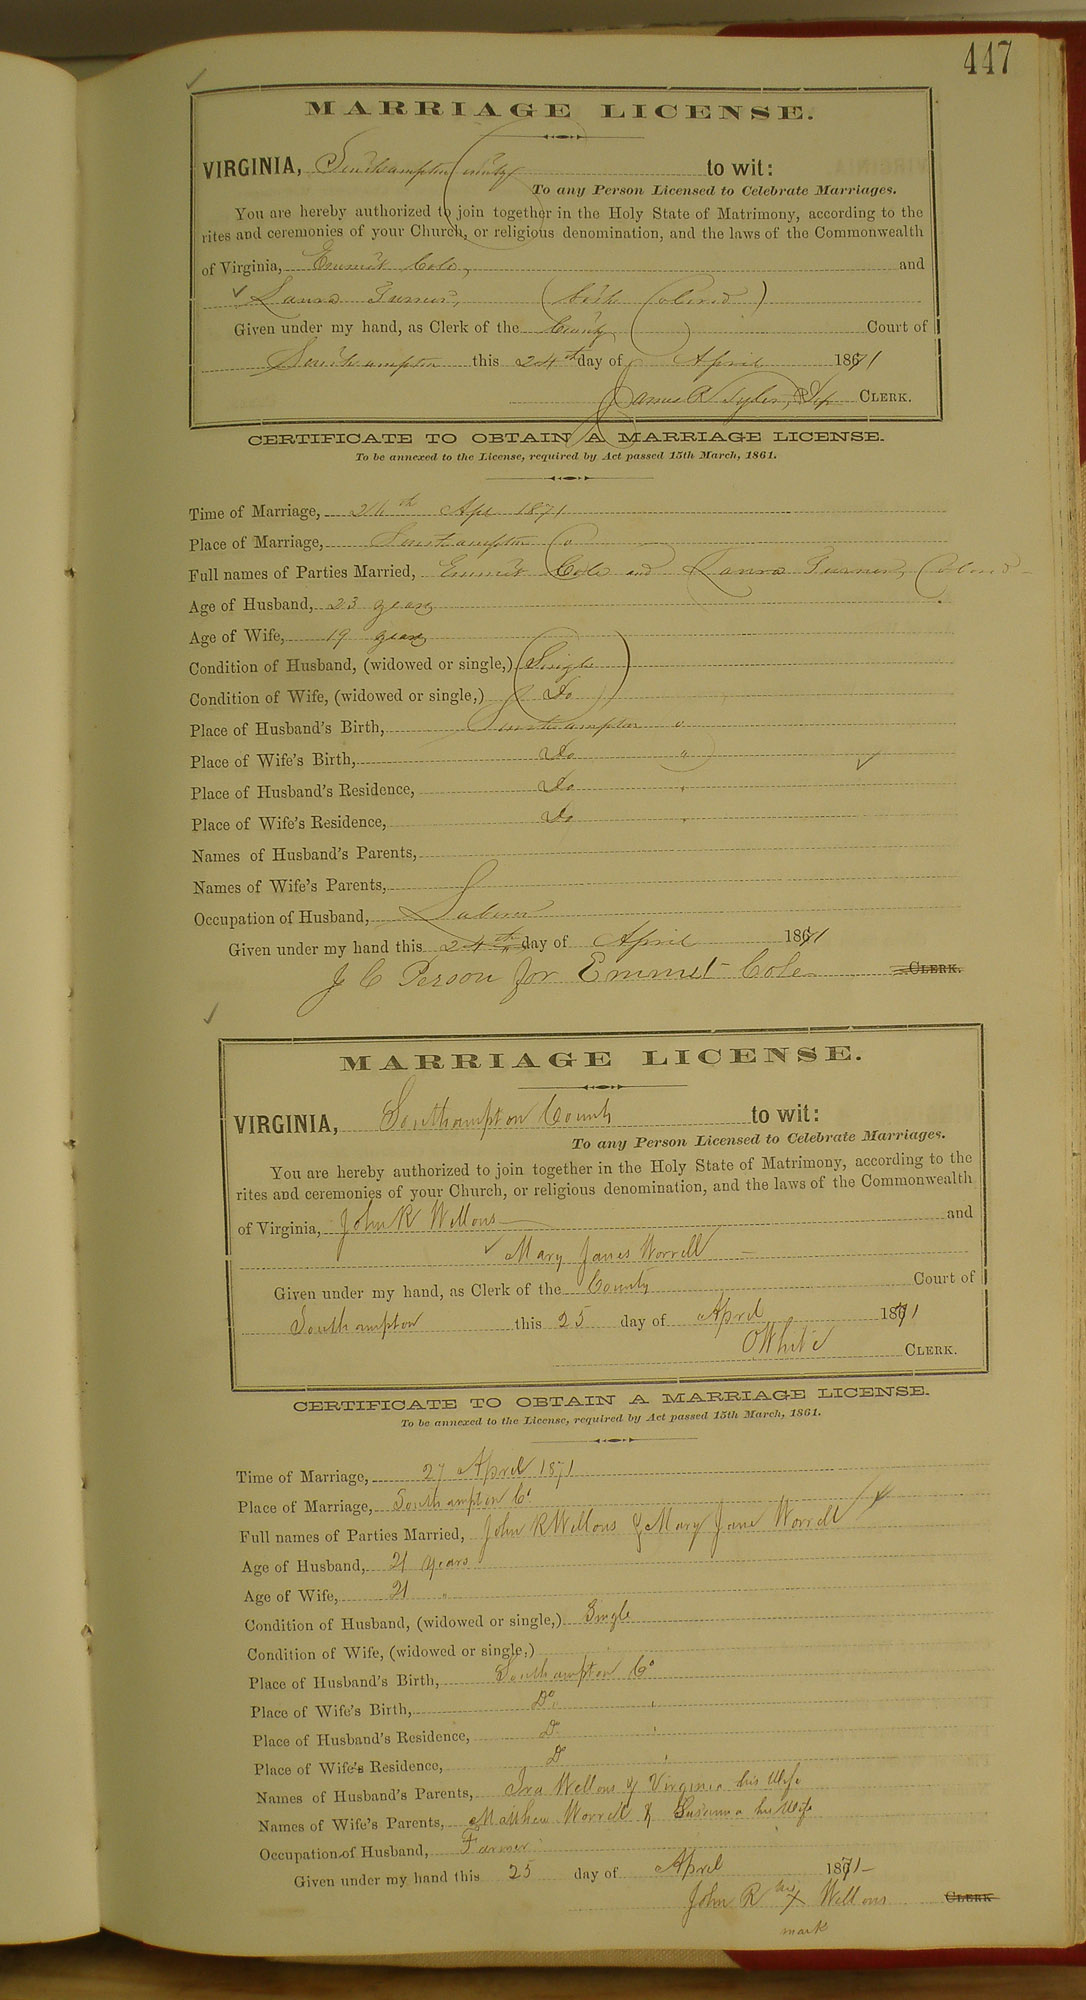 447
MARRIAGE LICENSE.
VIRGINIA, Southampton County to wit:
To any Person Licensed to Celebrate Marriages.
You are hereby authorized to join together in the Holy State of Matrimony, according to the
rites and ceremonies of your Church, or religious denomination, and the laws of the Commonwealth
of Virginia, Emmet Cole, and
Laura Turner, (both Colored)
Given under my hand, as Clerk of the County Court of
Southampton this 24th day of April 1871
James R Tyler, CLERK.
CERTIFICATE TO OBTAIN A MARRIAGE LICENSE.
To be annexed to the License, required by Act passed 15th March, 1861.
Time of Marriage, 26th Apl 1871
Place of Marriage, Southampton Co
Full names of Parties Married, Emmet Cole and Laura Turner, Colored
Age of Husband, 23 years
Age of Wife, 19 years
Condition of Husband, (widowed or single,) Single
Condition of Wife, (widowed or single,) Do
Place of Husband's Birth, Southampton Co
Place of Wife's Birth, Do "
Place of Husband's Residence, Do "
Place of Wife's Residence, Do "
Names of Husband's Parents,
Names of Wife's Parents,
Occupation of Husband, Laborer
Given under my hand this 24th day of April 1871
J C Person for Emmet Cole CLERK.
MARRIAGE LICENSE.
VIRGINIA, Southampton County to wit:
To any Person Licensed to Celebrate Marriages.
You are hereby authorized to join together in the Holy State of Matrimony, according to the
rites and ceremonies of your Church, or religious denomination, and the laws of the Commonwealth
of Virginia, John R Wellons and
Mary Janes Worrell
Given under my hand, as Clerk of the County Court of
Southampton this 25 day of April 1871
O White CLERK.
CERTIFICATE TO OBTAIN A MARRIAGE LICENSE.
To be annexed to the License, required by Act passed 15th March, 1861.
Time of Marriage, 27 April 1871
Place of Marriage, Southampton Co
Full names of Parties Married, John R Wellons & Mary Jane Worrell
Age of Husband, 21 years
Age of Wife, 21 "
Condition of Husband, (widowed or single,) Single
Condition of Wife, (widowed or single,)
Place of Husband's Birth, Southampton Co
Place of Wife's Birth, Do "
Place of Husband's Residence, Do "
Place of Wife's Residence, Do "
Names of Husband's Parents, Ira Wellons & Virginia his Wife
Names of Wife's Parents, Matthew Worrell & Susanna his Wife
Occupation of Husband, Farmer
Given under my hand this 25 day of April 1871
John R his x Wellons CLERK
mark